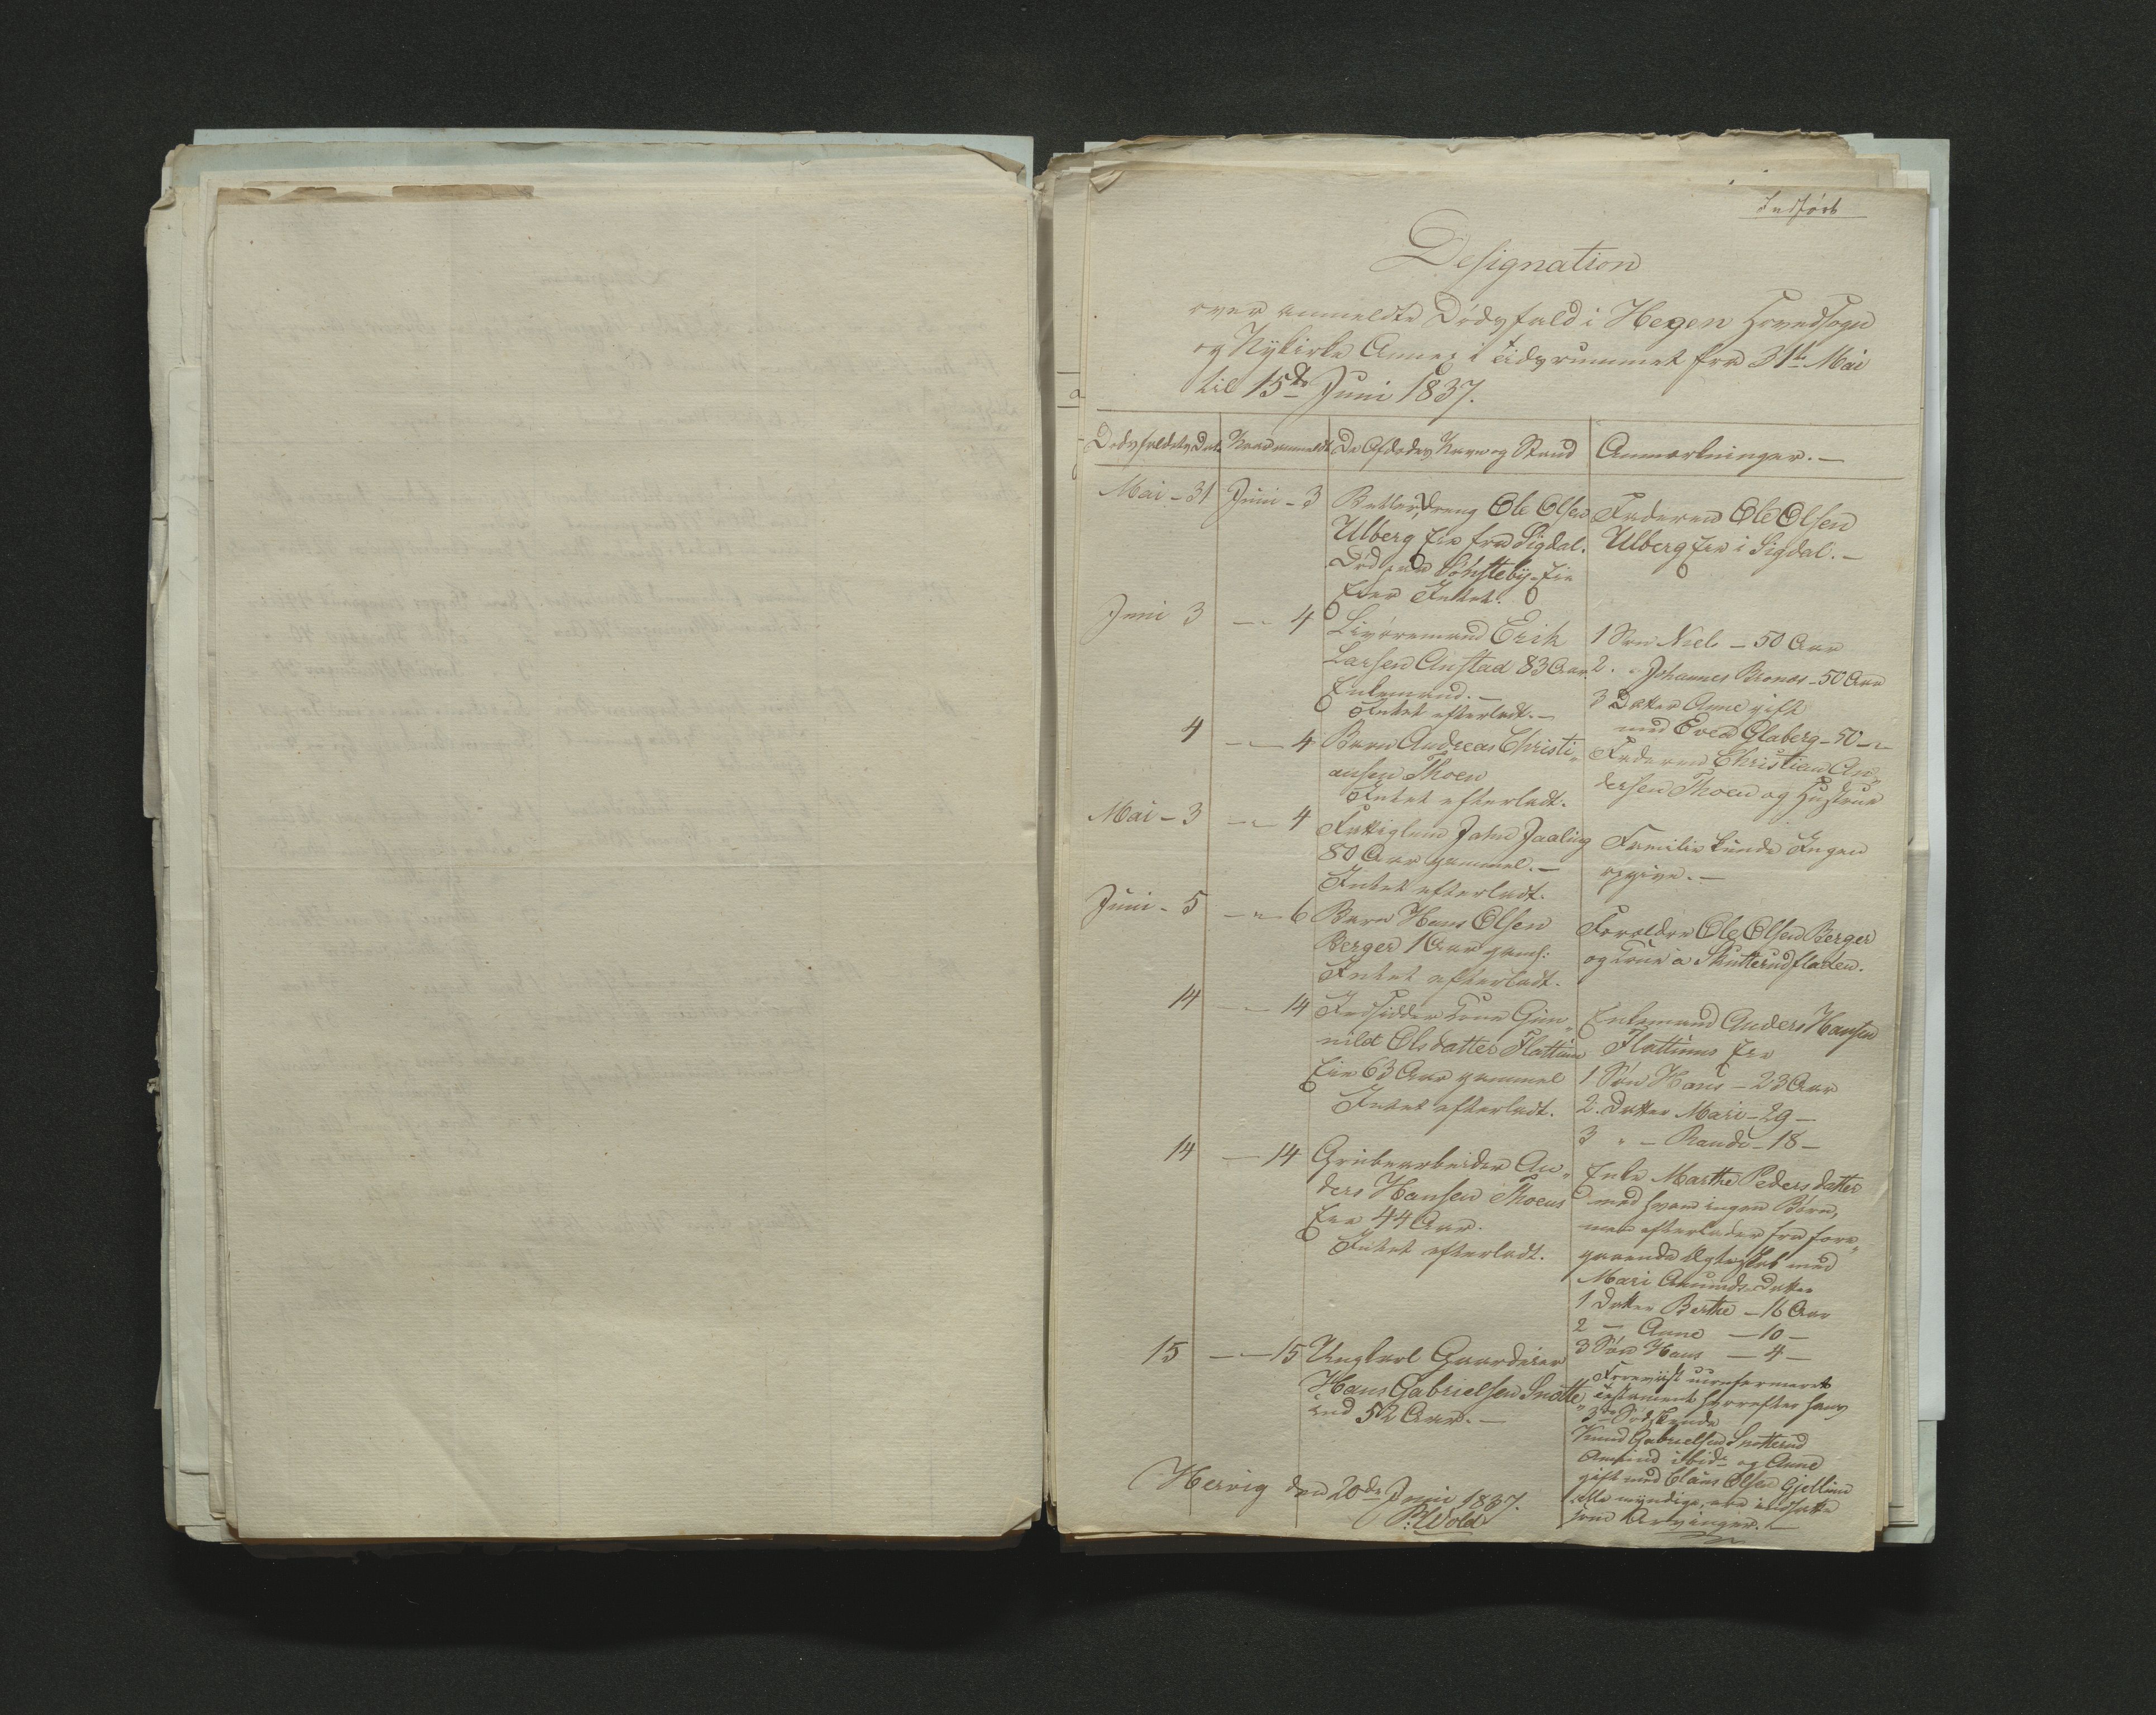 Indført
Designation
over anmeldte Dødsfald i Hegen Hovedsogn
og Nykirke Annex i Tidsrummet fra 31te Mai
til 15de Juni 1837.
Dødsfaldets Dat. Naar anmeldt De Afdødes Navn og Stand Anmærkninger. —
Mai - 31 Juni - 3 Betler Dreng Ole Olsen
Ulberg Eie fra Sigdal.
Død paa Sønsteby Eie
Eier Intet.
Faderen Ole Olsen
Ulberg Eie i Sigdal. —
Juni 3 — „ 4 Livøremand Erik
Larsen Anstad 83 Aar
Enkemand. —
Intet efterladt. —
1 Søn Niels — 50 Aar
2. „ Johannes Bronæs - 50 Aar
3 Datter Anne gift
med Even Glaberg - 50 — „
4 — „ — 4 Barn Andreas Christi„
ansen Thoen
Intet efterladt.
Faderen Christian An„
dersen Thoen og Hustrue
Mai - 3 — „ — 4 Fattiglem John Jaaling
80 Aar gammel. —
Intet efterladt.
Familie kunde Ingen
opgive. —
Juni - 5 — „ — 6 Barn Hans Olsen
Berger 1 Aar gaml:
Intet efterladt.
Forældre Ole Olsen Berger
og Kone a Skutterudfladen.
14 — „ — 14 Indsidder Kone Gun„
nild Olsdatter Flattum
Eie 63 Aar gammel
Intet efterladt.
Enkemand Anders Hansen
Flattums Eie
1 Søn Hans — 23 Aar
2. Datter Mari - 29 —
3 „ — Randi - 18 —
14 — 14 Grubearbeider An„
ders Hansen Thoens
Eie 44 Aar.
Intet efterladt.
Enke Marthe Pedersdatter
med hvem ingen Børn,
men efterlader fra fore„
gaaende Ægteskab med
Mari Amunds Datter
1 Datter Berthe — 16 Aar
2 — Anne — 10 —
3 Søn Hans — 4 —
15 — „ — 15 Ungkarl Gaardeier
Hans Gabrielsen Snotte„
rud 52 Aar. —
Foreviist uconfirmeret
Testament hvorefter hans
3de Sødskende
Knud Gabrielsen Snotterud
Amund ibid: og Anne
gift med Claus Olsen Gjellum
alle myndige, ere indsatte
som Arvinger. —
Hervig den 20de Juni 1837.
P: Wold